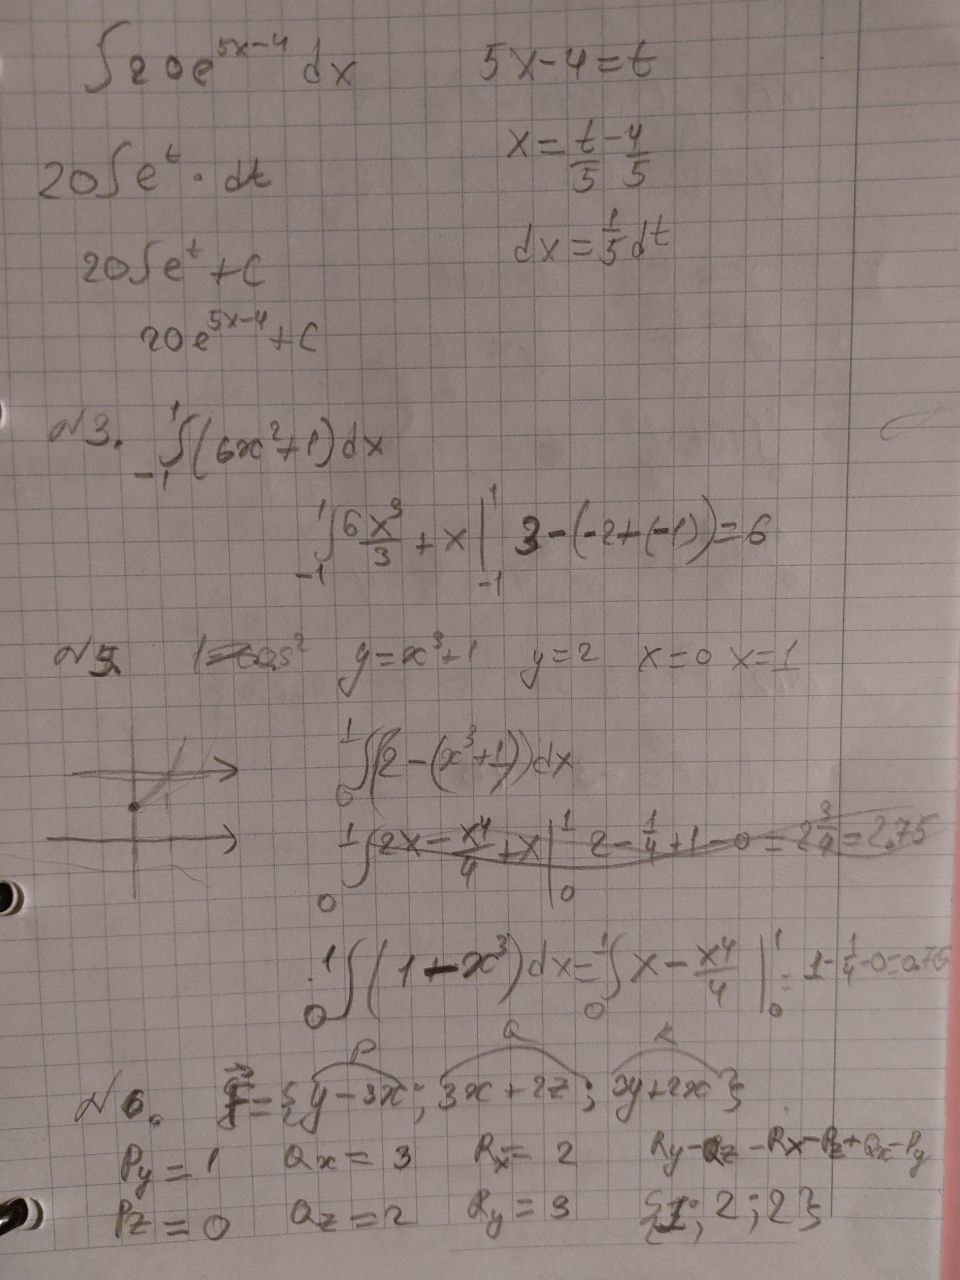 ∫20e^{5x-4} dx 5x-4=t
x=t/5-4/5
20∫e^t · dt
dx=1/5 dt
20∫e^t+C
20e^{5x-4}+C
N3. ∫_{-1}^{1}(6x²+1)dx
∫_{-1}^{1} 6 x³/3 + x |_{-1}^{1} 3-(-2+(-1))=6
N5. y=x³+1 y=2 x=0 x=1
∫_{0}^{1}(2-(x³+1))dx
∫_{0}^{1} 2x-x⁴/4+x |_{0}^{1} 2-1/4+1-0=2 3/4=2,75
∫_{0}^{1}(1-x³)dx=∫_{0}^{1} x-x⁴/4 |_{0}^{1} = 1-1/4-0=0,75
P Q R
N6. ={y-3x; 3x+2z; 3y+2x}
Py=1 Qx=3 Rx=2 Ry-Qz-Rx-Pz+Qx-Py
Pz=0 Qz=2 Ry=3 {1; 2; 2}